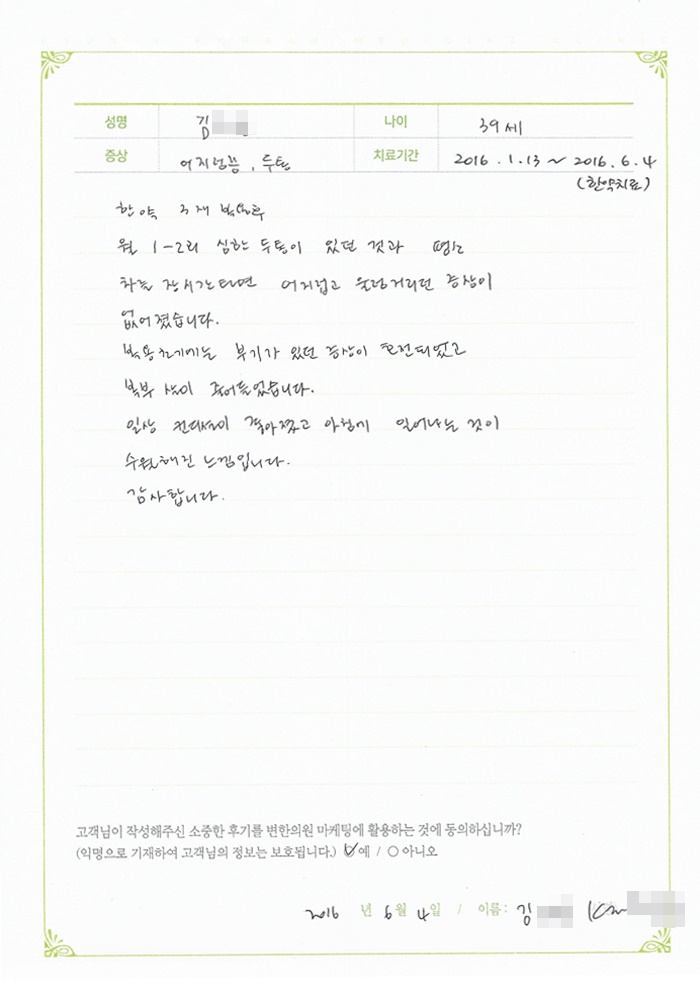 성명 김 나이 39세
증상 어지러움, 두통 치료기간 2016. 1. 13 ~ 2016. 6. 4
(한약치료)
한약 3재 복용후
월 1-2회 심한 두통이 있던 것과 평소
차를 장시간타면 어지럽고 울렁거리던 증상이
없어졌습니다.
복용초기에는 부기가 있던 증상이 호전되었고
복부 살이 줄어들었습니다.
일상 컨디션이 좋아졌고 아침에 일어나는 것이
수월해진 느낌입니다.
감사합니다.
고객님이 작성해주신 소중한 후기를 변한의원 마케팅에 활용하는 것에 동의하십니까?
(익명으로 기재하여 고객님의 정보는 보호됩니다.) ✓예 / ○아니오
2016 년 6월 4일 / 이름: 김